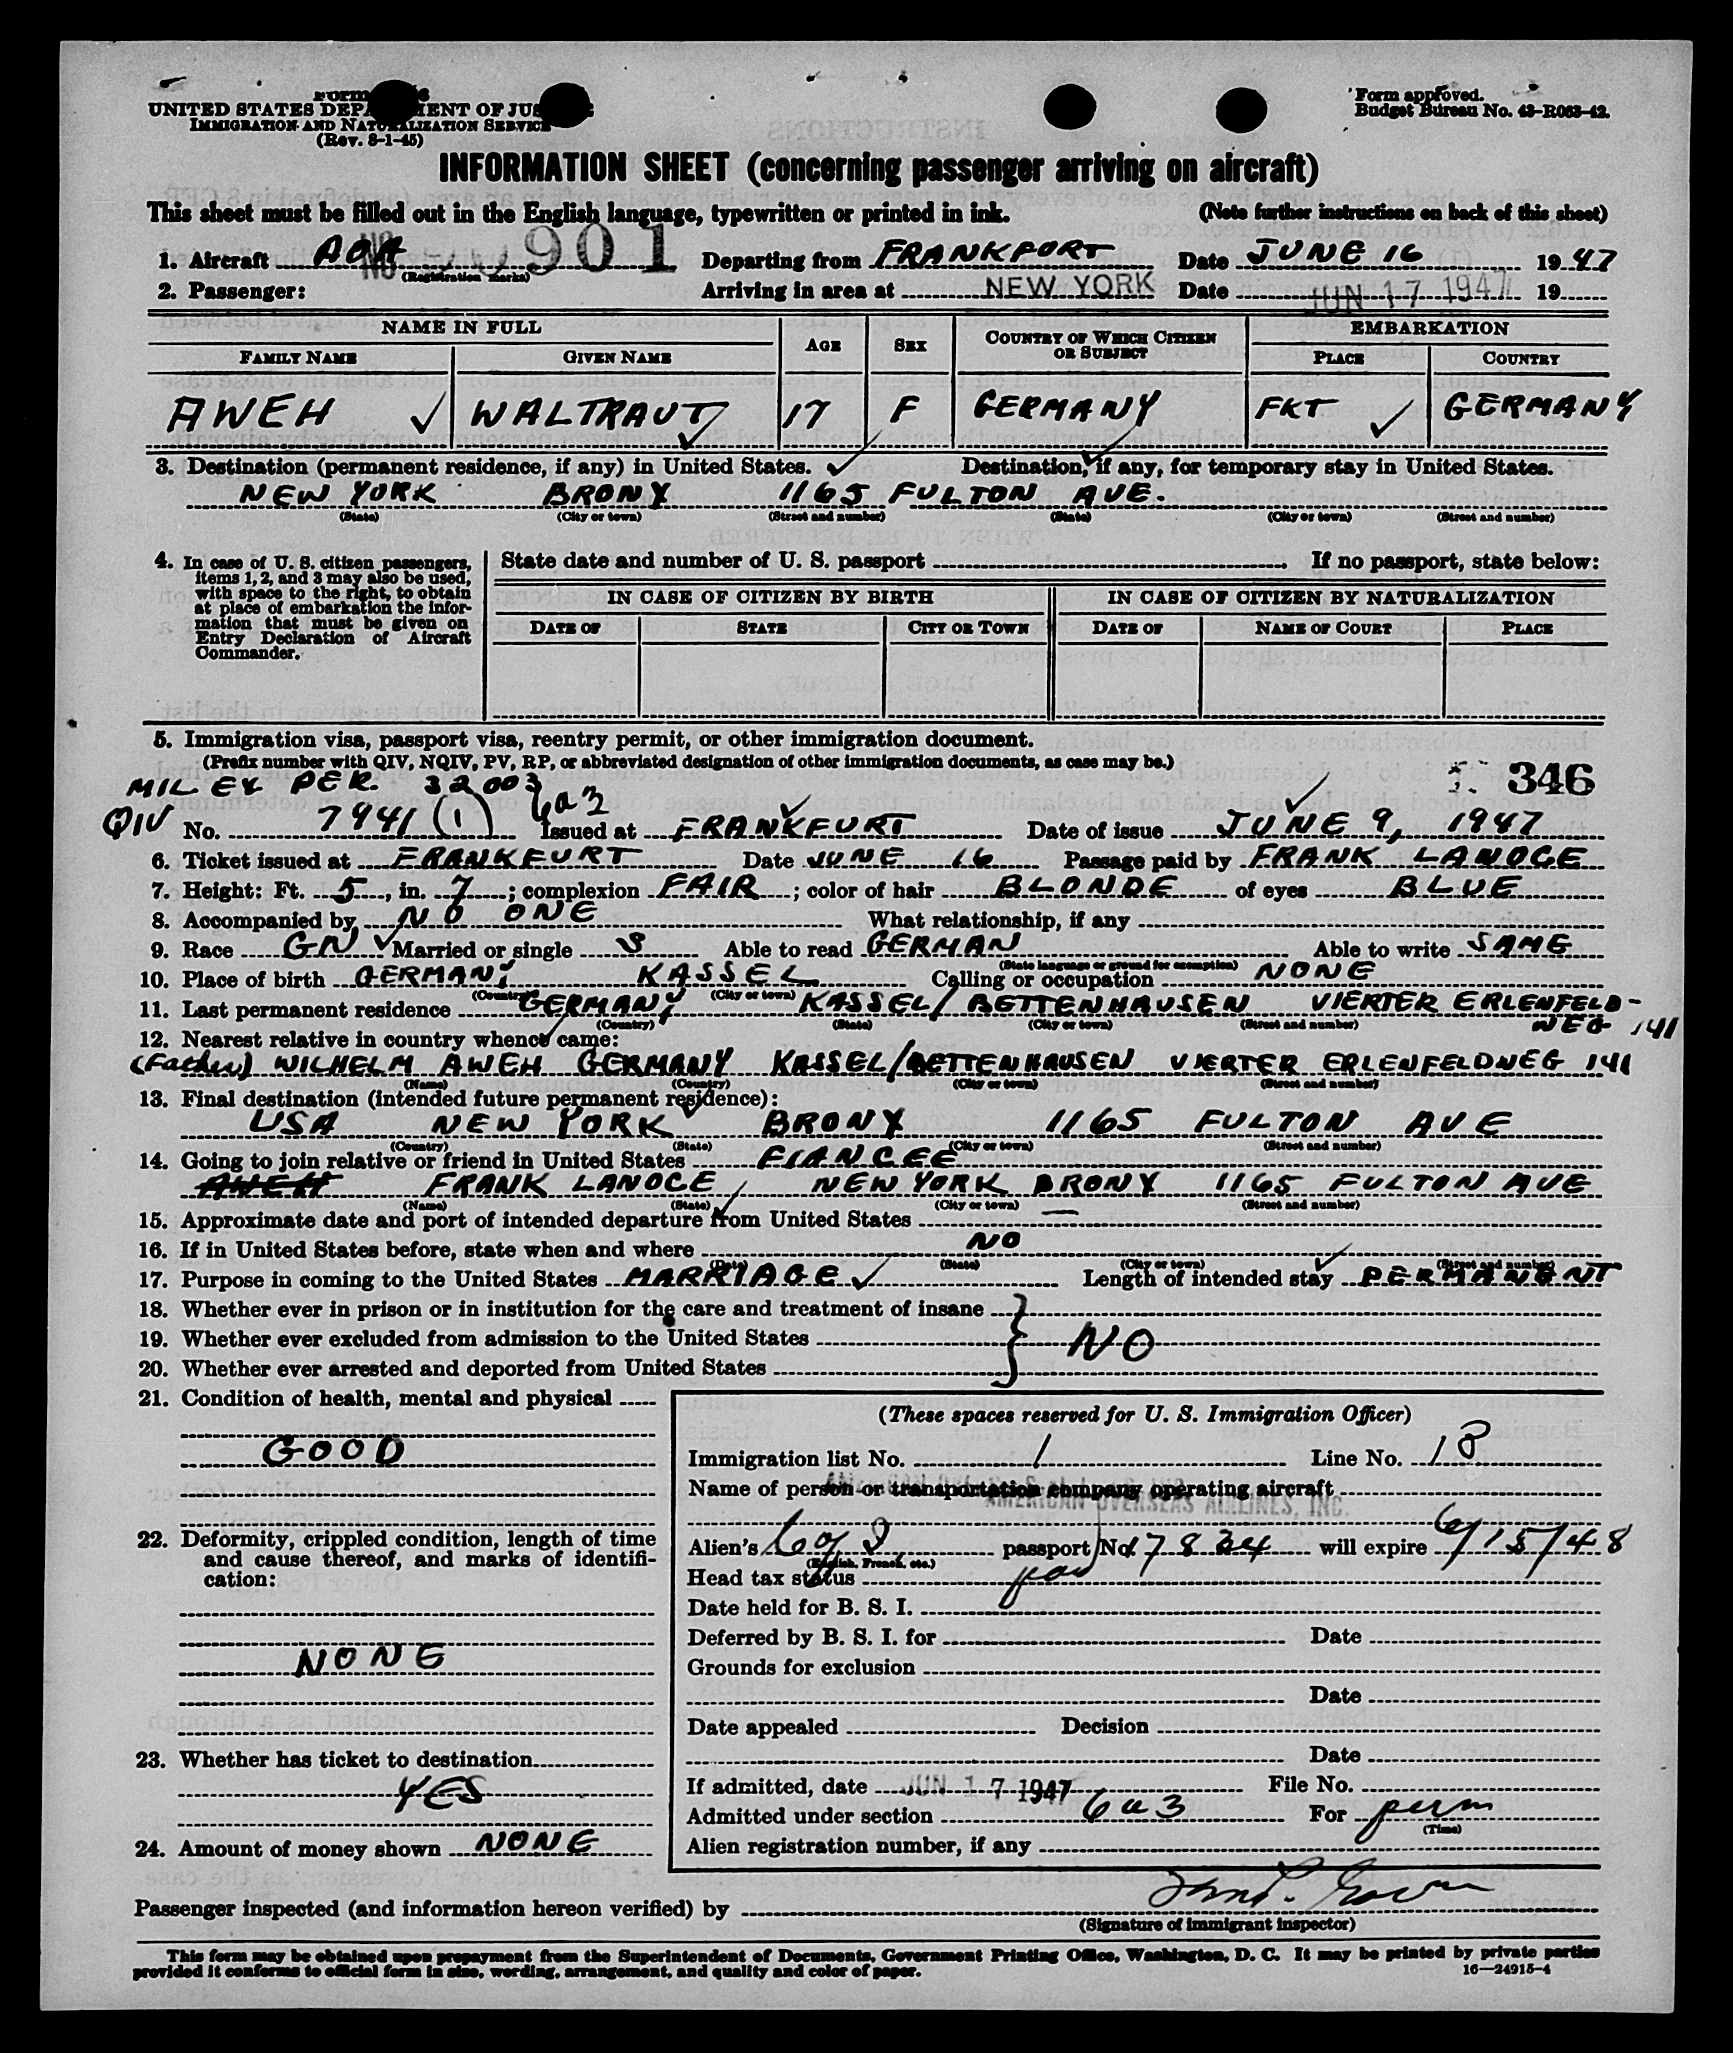 UNITED STATES DEPARTMENT OF JUSTICE
IMMIGRATION AND NATURALIZATION SERVICE
(Rev. 8-1-45)
Form approved.
Budget Bureau No. 43-R063-42.
INFORMATION SHEET (concerning passenger arriving on aircraft)
This sheet must be filled out in the English language, typewritten or printed in ink. (Note further instructions on back of this sheet)
1. Aircraft AOA NC 901 Departing from FRANKFORT Date JUNE 16 1947
(Registration marks)
2. Passenger: Arriving in area at NEW YORK Date JUN 17 1947 19
NAME IN FULL AGE SEX COUNTRY OF WHICH CITIZEN OR SUBJECT EMBARKATION
FAMILY NAME GIVEN NAME PLACE COUNTRY
AWEH WALTRAUT 17 F GERMANY FKT GERMANY
3. Destination (permanent residence, if any) in United States. Destination, if any, for temporary stay in United States.
NEW YORK BRONX 1165 FULTON AVE.
(State) (City or town) (Street and number) (State) (City or town) (Street and number)
4. In case of U. S. citizen passengers,
items 1, 2, and 3 may also be used,
with space to the right, to obtain
at place of embarkation the infor-
mation that must be given on
Entry Declaration of Aircraft
Commander.
State date and number of U. S. passport . If no passport, state below:
IN CASE OF CITIZEN BY BIRTH IN CASE OF CITIZEN BY NATURALIZATION
DATE OF STATE CITY OR TOWN DATE OF NAME OF COURT PLACE
5. Immigration visa, passport visa, reentry permit, or other immigration document.
(Prefix number with QIV, NQIV, PV, RP, or abbreviated designation of other immigration documents, as case may be.)
MIL EX PER. 32003 6a3 346
QIV No. 7941 (1) Issued at FRANKFURT Date of issue JUNE 9, 1947
6. Ticket issued at FRANKFURT Date JUNE 16 Passage paid by FRANK LANOCE
7. Height: Ft. 5, in. 7; complexion FAIR; color of hair BLONDE of eyes BLUE
8. Accompanied by NO ONE What relationship, if any
9. Race GN Married or single S Able to read GERMAN Able to write SAME
(State language or ground for exemption)
10. Place of birth GERMANY KASSEL Calling or occupation NONE
(Country) (City or town)
11. Last permanent residence GERMANY KASSEL/BETTENHAUSEN VIERTER ERLENFELD-
WEG 141
(Country) (State) (City or town) (Street and number)
12. Nearest relative in country whence came:
(Father) WILHELM AWEH GERMANY KASSEL/BETTENHAUSEN VIERTER ERLENFELDWEG 141
(Name) (Country) (City or town) (Street and number)
13. Final destination (intended future permanent residence):
USA NEW YORK BRONX 1165 FULTON AVE
(Country) (State) (City or town) (Street and number)
14. Going to join relative or friend in United States FIANCEE
AWEH FRANK LANOCE NEW YORK BRONX 1165 FULTON AVE
(Name) (State) (City or town) (Street and number)
15. Approximate date and port of intended departure from United States —
16. If in United States before, state when and where NO
(Date) (State) (City or town) (Street and number)
17. Purpose in coming to the United States MARRIAGE Length of intended stay PERMANENT
18. Whether ever in prison or in institution for the care and treatment of insane
19. Whether ever excluded from admission to the United States NO
20. Whether ever arrested and deported from United States
21. Condition of health, mental and physical
GOOD
22. Deformity, crippled condition, length of time
and cause thereof, and marks of identifi-
cation:
NONE
23. Whether has ticket to destination
YES
24. Amount of money shown NONE
(These spaces reserved for U. S. Immigration Officer)
Immigration list No. 1 Line No. 18
Name of person or transportation company operating aircraft
AMERICAN OVERSEAS AIRLINES, INC.
Alien's passport No. 17824 will expire 6/15/48
(English, French, etc.)
Head tax status
Date held for B. S. I.
Deferred by B. S. I. for Date
Grounds for exclusion
Date
Date appealed Decision
Date
If admitted, date JUN 17 1947 File No.
Admitted under section 6a3 For perm
(Time)
Alien registration number, if any
Passenger inspected (and information hereon verified) by
(Signature of immigrant inspector)
This form may be obtained upon prepayment from the Superintendent of Documents, Government Printing Office, Washington, D. C. It may be printed by private parties
provided it conforms to official form in size, wording, arrangement, and quality and color of paper.
16—24915-4